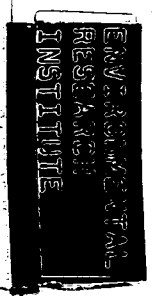 ENVIRONMENTAL
RESEARCH
INSTITUTE